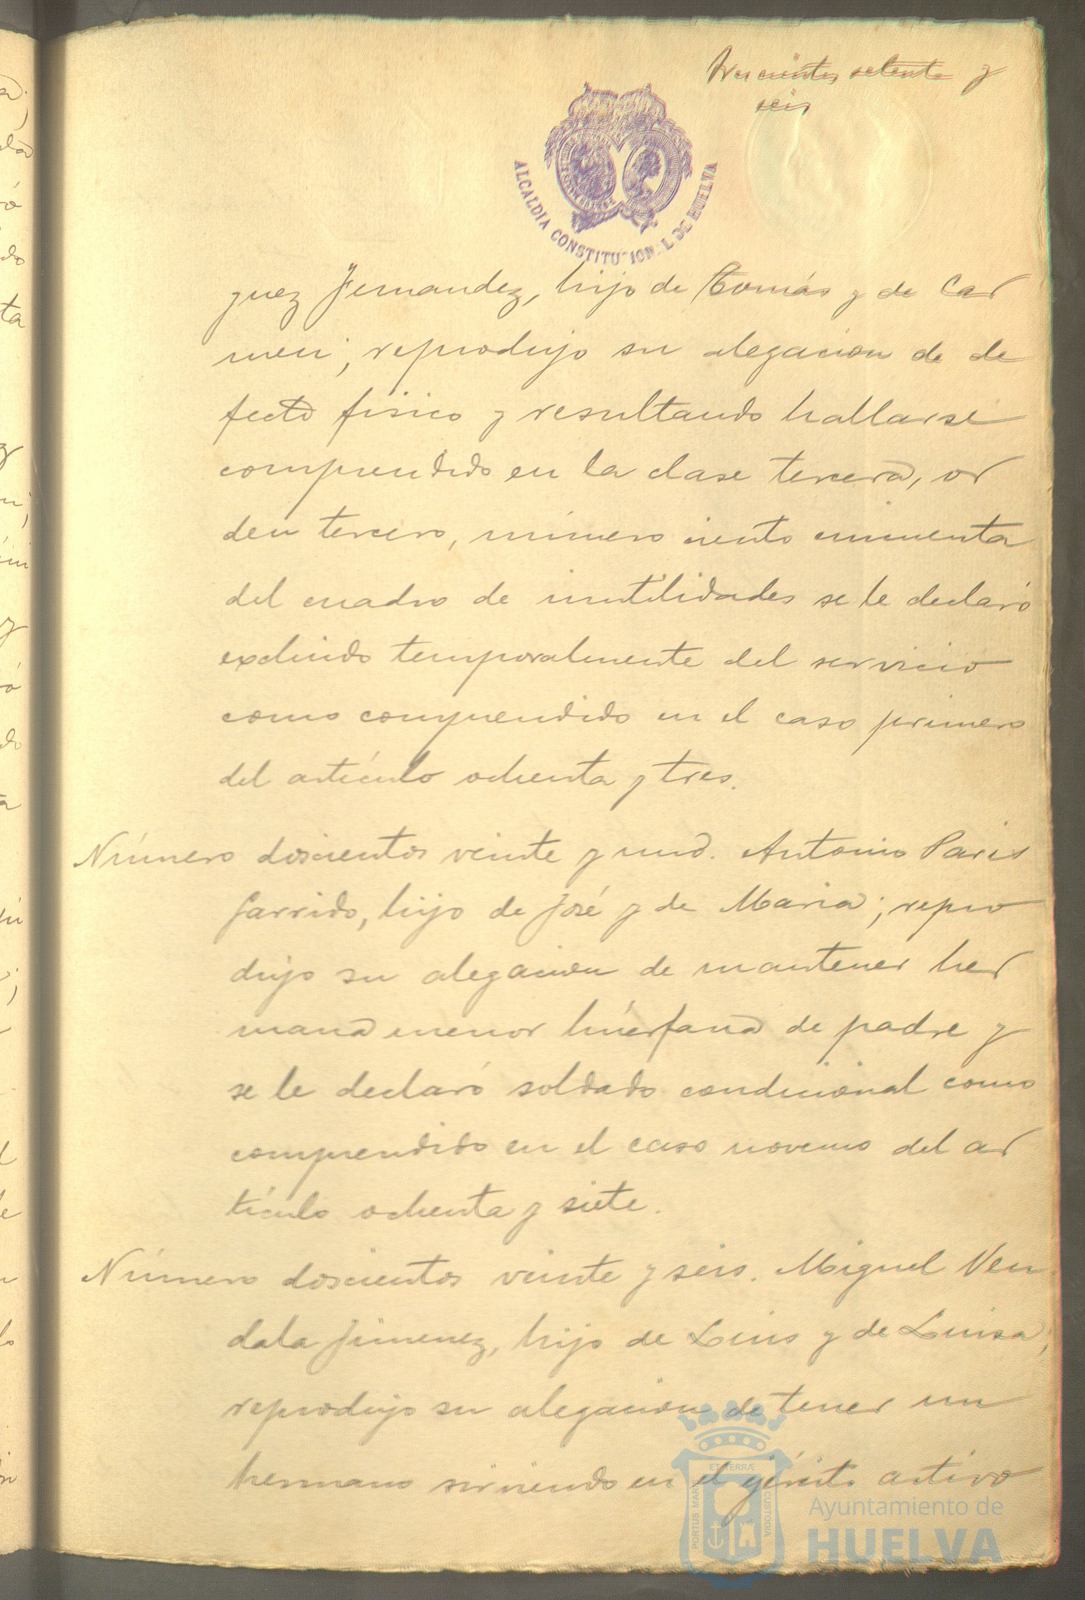 Trescientos setenta y
seis
ALCALDIA CONSTITUCIONAL DE HUELVA
guez Fernandez, hijo de Tomás y de Car
men; reprodujo su alegacion de de
fecto fisico y resultando hallarse
comprendido en la clase tercera, or
den tercero, número ciento cincuenta
del cuadro de inutilidades se le declaró
excluido temporalmente del servicio
como comprendido en el caso primero
del artículo ochenta y tres.
Número doscientos veinte y uno. Antonio Paris
Garrido, hijo de José y de Maria; repro
dujo su alegacion de mantener her
mana menor huérfana de padre y
se le declaró soldado condicional como
comprendido en el caso noveno del ar
tículo ochenta y siete.
Número doscientos veinte y seis. Miguel Ven
dala Jimenez, hijo de Luis y de Luisa,
reprodujo su alegacion de tener un
hermano sirviendo en el ejército activo
PORTUS MARIS
ET TERRÆ
CUSTODIA
Ayuntamiento de
HUELVA